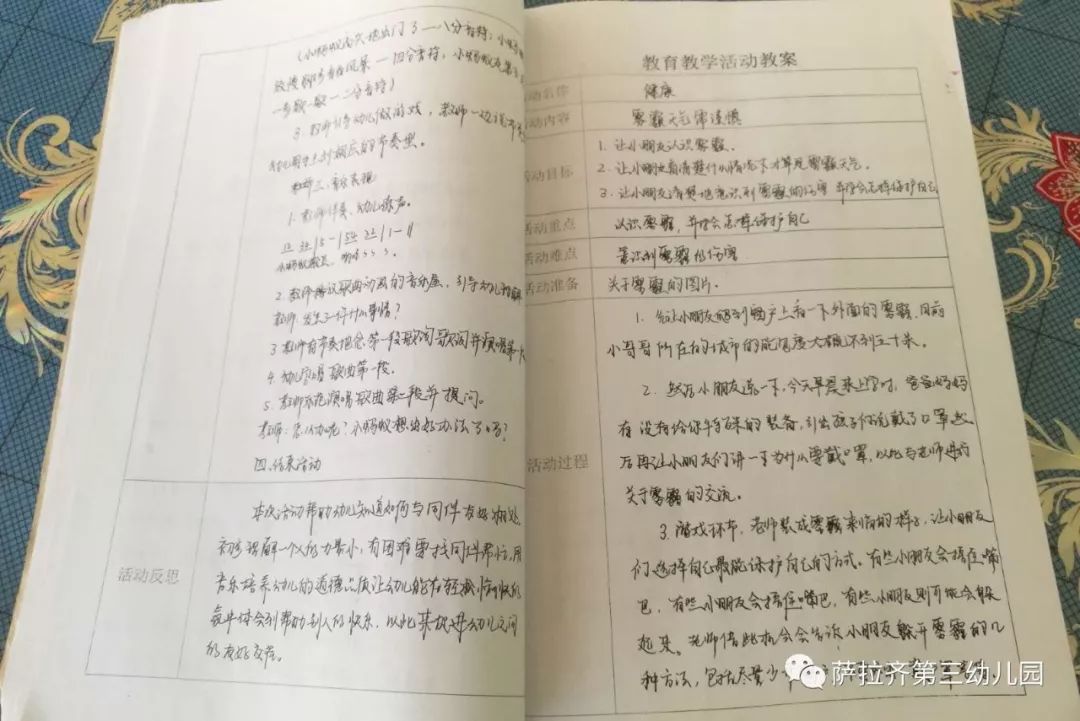 （小蚂蚁高兴地出门了——八分音符；小
一步歇一歇——二分音符）
3. 教师引导幼儿做游戏，教师一边说
相应的节奏型。
1. 教师伴奏，幼儿练声。
2. 教师播放歌曲动画的音乐，引导幼儿理解
教师：发生了一件什么事情？
3. 教师有节奏地念第一段歌词
4. 幼儿学唱歌曲第一段。
5. 教师示范演唱歌曲第二段并提问。
教师：怎么办呢？小蚂蚁想出好办法了吗？
四、结束活动
活动反思
本次活动帮助幼儿知道如何与同伴友好相处，
初步理解一个人的力量小，有困难要找同伴帮忙，用
音乐培养幼儿的道德品质让幼儿能在轻松愉快的
氛围中体会到帮助别人的快乐，以此来促进幼儿之间
的友好交往。
教育教学活动教案
活动名称
健康
活动内容
雾霾天气需谨慎
活动目标
1. 让小朋友认识雾霾。
2. 让小朋友看清楚什么情况下才算是雾霾天气。
3. 让小朋友清楚地意识到雾霾的伤害，并学会怎样保护自己
活动重点
认识雾霾，并学会怎样保护自己
活动难点
意识到雾霾的伤害
活动准备
关于雾霾的图片。
活动过程
1. 先让小朋友们到窗户上看一下外面的雾霾，目前
小哥哥所在的城市的能见度大概不到五十米。
2. 然后小朋友说一下，今天早晨来上学时，爸爸妈妈
有没有给你特殊的装备，引出孩子们说戴了口罩，然
后再让小朋友们讲一下为什么要戴口罩，以此与老师进行
关于雾霾的交流。
3. 游戏环节，老师装成雾霾来临的样子，让小朋友
们选择自己最能保护自己的方式。有些小朋友会捂住嘴
巴，有些小朋友会捂住嘴巴，有些小朋友则可能会躲
起来。老师借此机会会告诉小朋友躲开雾霾的几
种方法，包括尽量少
萨拉齐第三幼儿园